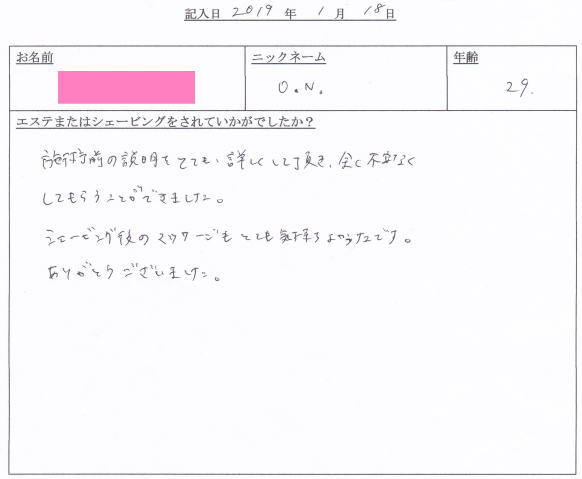 記入日 2019 年 1 月 18日
お名前 ニックネーム 年齢
O.N. 29.
エステまたはシェービングをされていかがでしたか？
施術前の説明もとても詳しくして頂き、全く不安なく
してもらうことができました。
シェービング後のマッサージもとても気持ちよかったです。
ありがとうございました。